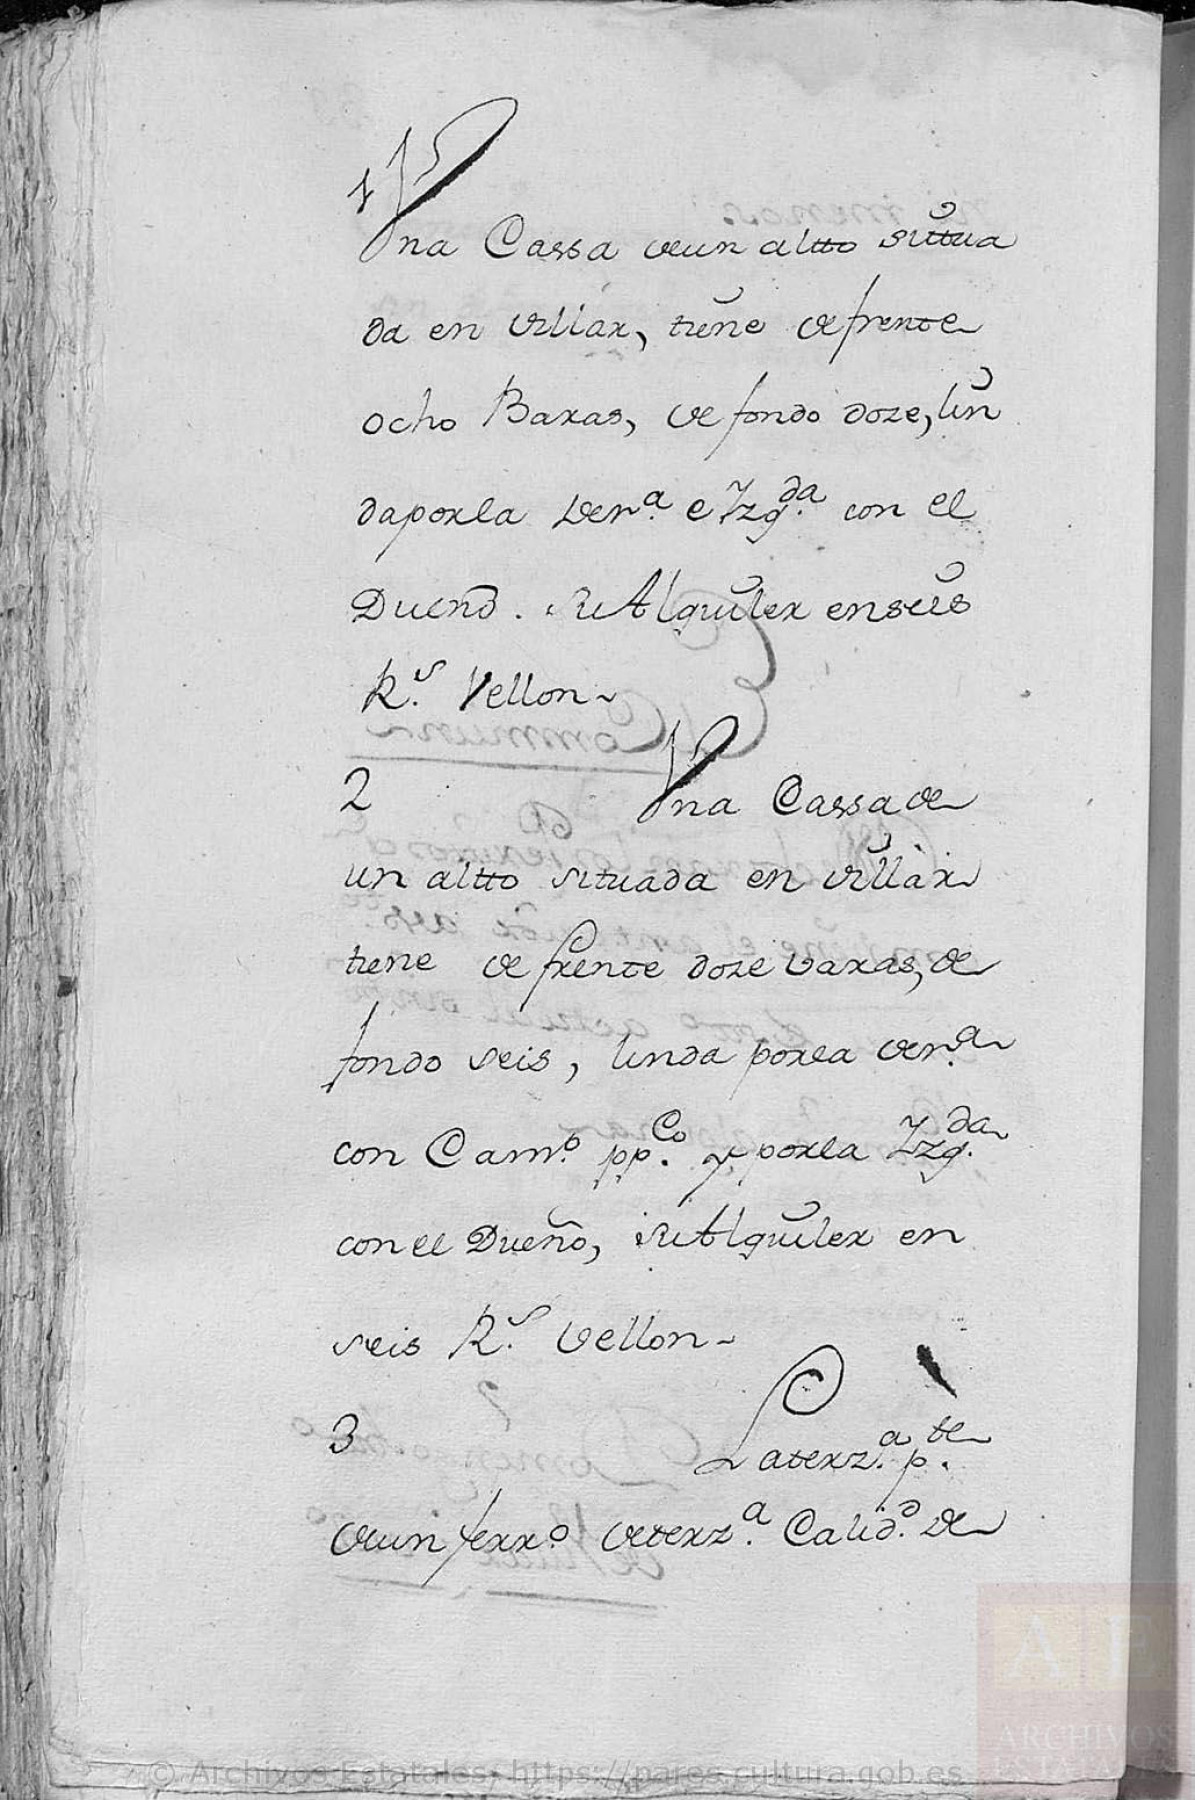 1
Una Cassa de un altto sittua
da en Villar, tiene de frente
ocho Baras, de fondo doze, lin
da por la Der.ª e Yzq.da con el
Dueño. su Alquiler en seis
R.s Vellon~
2 Una Cassa de
un altto situada en Villar
tiene de frente doze varas, de
fondo seis, linda por la der.ª
con Cam.º pp.co y por la Yzq.da
con el Dueño, su Alquiler en
seis R.s Vellon~
3 La terz.ª p.te
de un ferr.º de terz.ª Calid.d de
© Archivos Estatales, https://pares.cultura.gob.es
AE
ARCHIVOS
ESTATALES